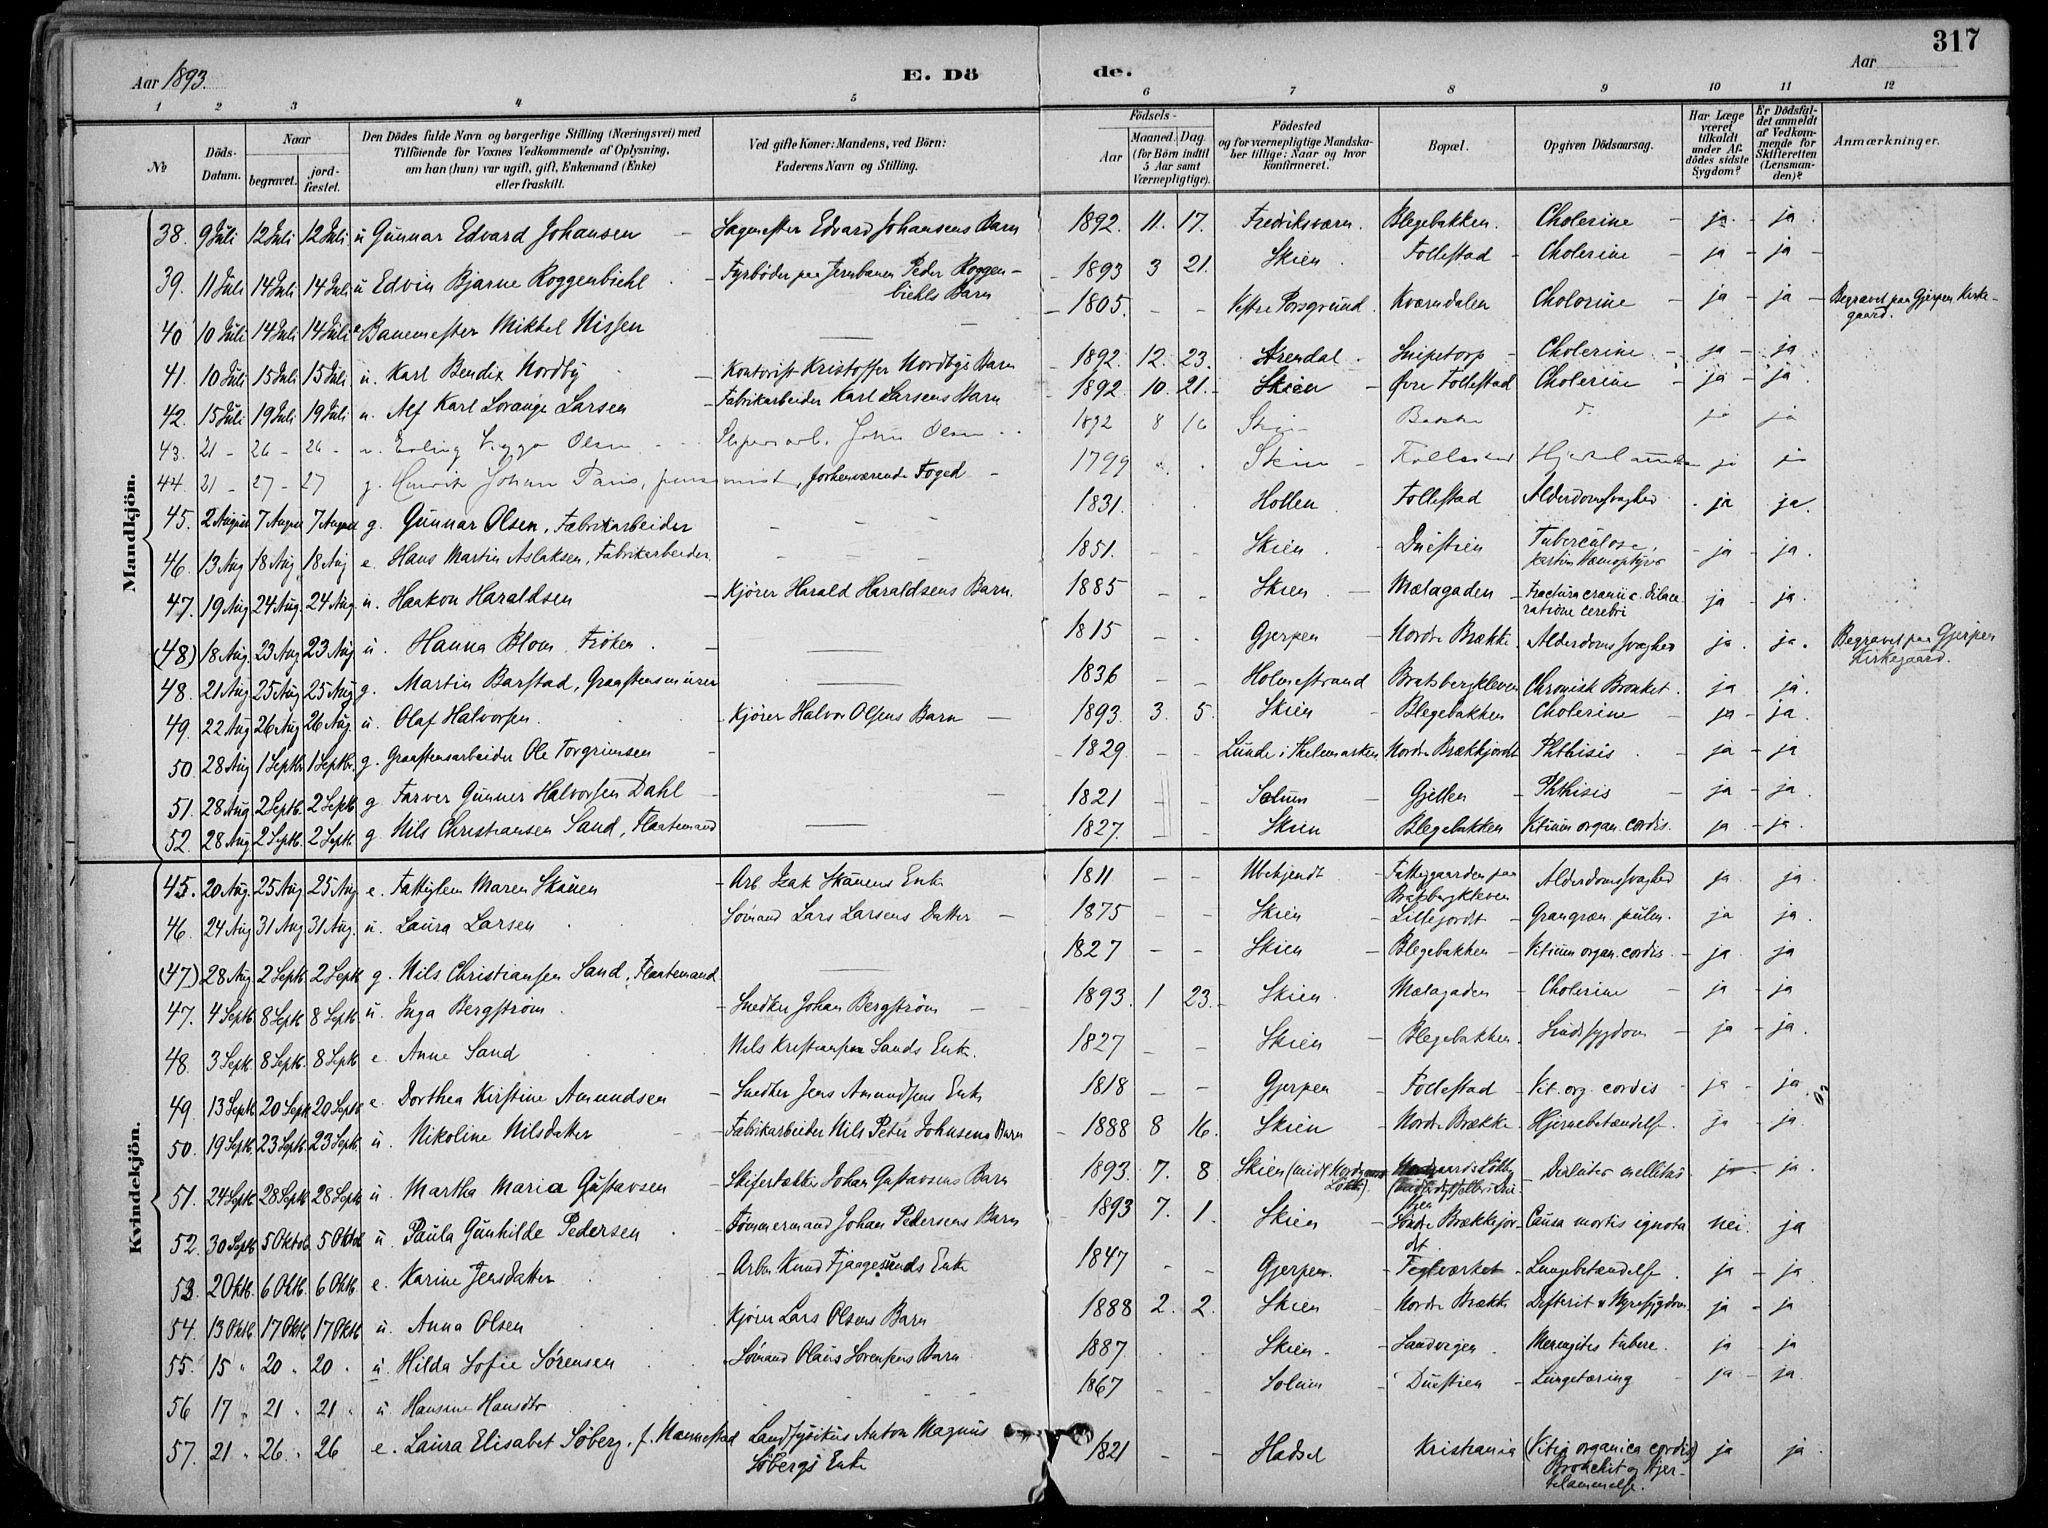 Aar 1893.
E. Dö de.
Aar
317
1 2 3 4 5 6 7 8 9 10 11 12
№
Döds-Datum.
Naar
begravet.
jord-fæstet.
Den Dödes fulde Navn og borgerlige Stilling (Næringsvei) med
Tilföiende for Voxnes Vedkommende af Oplysning,
om han (hun) var ugift, gift, Enkemand (Enke)
eller fraskilt.
Ved gifte Koner: Mandens, ved Börn:
Faderens Navn og Stilling.
Födsels-
Aar
Maaned. Dag.
(for Börn indtil
5 Aar samt
Værnepligtige).
Födested
og for værnepligtige Mandska-
ber tillige: Naar og hvor
konfirmeret.
Bopæl.
Opgiven Dödsaarsag.
Har Læge
været
tilkaldt
under Af-
dödes sidste
Sygdom?
Er Dödsfal-
det anmeldt
af Vedkom-
mende for
Skifteretten
(Lensman-
den)?
Anmærkninger.
Mandkjön.
38. 9 Juli 12 Juli 12 Juli u Gunnar Edvard Johansen - Sagmester Edvard Johansens Barn 1892. 11. 17. Fredriksværn. Blegebakken. Cholerine - ja - ja
39. 11 Juli 14 Juli 14 Juli u Edvin Bjarne Roggenbiehl - Fyrbøder paa Jernbanen Peder Roggen-
biehls Barn - 1893 3 21. Skien. Follestad - Cholerine - ja - ja -
40 10 Juli 14 Juli 14 Juli e Banemester Mikkel Nissen - 1805. - - Vestre Porsgrund. Kværndalen Cholorine - ja - ja - Begravet paa Gjerpen Kirke-
gaard.
41. 10 Juli 15 Juli 15 Juli u. Karl Bendix Nordby - Kontorist Kristoffer Nordbys Barn 1892. 12. 23. Arendal. Snipetorp - Cholerine - ja - ja
42. 15 Juli 19 Juli 19 Juli u. Alf Karl Lorange Larsen - Fabrikarbeider Karl Larsens Barn - 1892 10. 21. - Skien - Øvre Follestad - Cholerine - ja - ja.
43. 21 - 26 - 26 - u. Erling Viggo Olsen John Olsen 1892 8 16 Skien Bakken d. ja ja
44. 21 - 27 - 27 g. Henrik Johan Paus, pensionist, forhenværende Foged - 1799 Skien - Follestad ja ja
45. 2 August 7 August 7 August g. Gunnar Olsen, Fabrikarbeider - - - 1831. Hollen Follestad Alderdomssvaghed - ja ja.
46. 13 Aug 18 Aug 18 Aug e. Hans Martin Aslaksen, Fabrikarbeider. - - - 1851. - - Skien - Duestien Tuberculose, - ja - ja.
47. 19 Aug 24 Aug. 24 Aug. u. Haakon Haraldsen - Kjører Harald Haraldsens Barn. 1885 - - Skien. - Mælagaden - Fractura cranii c. dilace-
ratione cerebri ja - ja.
(48) 18 Aug. 23 Aug 23 Aug. u. Hanna Blom, Frøken. - 1815 - - Gjerpen - Nordre Brække. Alderdomssvaghed ja. ja. Begravet paa Gjerpen
Kirkegaard.
48. 21 Aug 25 Aug 25 Aug g. Martin Barstad, Graastensmurer 1836 - - Holmestrand Bratsbergkleven Chronisk Bronket. ja - ja.
49. 22 Aug 26 Aug 26 Aug. u. Olaf Halvorsen. - Kjører Halvor Olsens Barn - 1893 3. 5. Skien - Blegebakken Cholerine - ja - ja.
50. 28 Aug 1 Septb. 1 Septbr. g. Graastensarbeider Ole Torgrimsen - 1829 - - Lunde i Thelemarken Nordre Brækkjordet Phthisis. - ja - ja
51. 28 Aug 2 Septb. 2 Septb. g Farver Gunner Halvorsen Dahl - 1821 - - Solum - Gjetten - Phthisis - ja - ja
52. 28 Aug. 2 Septb. 2 Septb. g Nils Christiansen Sand, Flaatemand 1827. - - Skien Blegebakken Vitium organ. cordis. ja - ja.
Kvindekjön.
45. 20 Aug. 25 Aug 25 Aug e. Fattiglem Maren Skauen - Arb Isak Skauens Enke 1811 - - Ubekjendt. - Fattiggaarden paa
Bratsbergkleven Alderdomssvaghed ja. ja
46. 24 Aug 31 Aug 31 Aug. u. Laura Larsen Sømand Lars Larsens Datter - 1875 - - Skien Lillejordet - Grangræn. pulm. ja - ja.
(47) 28 Aug 2 Septb 2 Septb g. Nils Christiansen Sand, Flaatemand 1827 - - Skien - Blegebakken - Vitium organ. cordis. - ja - ja
47. 4 Septb. 8 Septb. 8 Septb. u. Inga Bergstrøm. - Snedker Johan Bergstrøm - - 1893. 1 23. - Skien. Mælagaden - Cholerine - ja - ja
48. 3 Septb. 8 Septb. 8 Septb. e. Anne Sand Nils Kristiansen Sands Enke. 1827 - - Skien - Blegebakken. Sindssygdom - ja - ja.
49. 13 Septb. 20 Septb 20 Septb e. Dorthea Kirstine Amundsen - Snedker Jens Amundsens Enke 1818 - - Gjerpen - Follestad - Vit. org. cordis - ja - ja
50. 19 Septb. 23 Septb. 23 Septb. u. Nikoline Nilsdatter - Fabrikarbeider Nils Peter Johnsens Barn - 1888 8 16. Skien - Nordre Brække - Hjernebetændelse. ja - ja.
51. 24 Septb 28 Septb 28 Septb u. Martha Maria Gustavsen - Skifertækker Johan Gustavsens Barn 1893. 7. 8 Skien - mellitus ja - ja.
52. 30 Septb 5 Oktob. 5 Oktob. u. Paula Gunhilde Pedersen. - Tømmermand Johan Pedersens Barn 1893 7. 1. Skien - Søndre Brækkejor-
det Causa mortis ignota nei. ja
53. 2 Oktb. 6 Oktb. 6 Oktb. e. Karine Jensdatter. - Arb. Knud Fjaagesunds Enke 1847 - - Gjerpen. - Teglværket - Lungebetændelse. ja - ja
54. 13 Oktb. 17 Oktb 17 Oktb u. Anna Olsen Kjører Lars Olsens Barn 1888 2. 2. Skien - Nordre Brække Difterit & Nyresygdom ja - ja
55. 15 " 20 " 20 " u. Hilda Sofie Sørensen - Sømand Olaus Sorensens Barn 1887. Skien. Landvigen. Meningitis tuberc. ja - ja
56 17 " 21 " 21 " u Hansine Hansdtr 1867 - - Solum Duestien - Lungetæring - ja - ja.
57. 21 " 26 " 26 e. Laura Elisabet Søberg, f. Mannestad Landfysikus Anton Magnus
Søbergs Enke 1821 - - Hadsel Kristiania (Vitia organica cordis)
Bronchit og Hjer-
telammelse. ja ja.